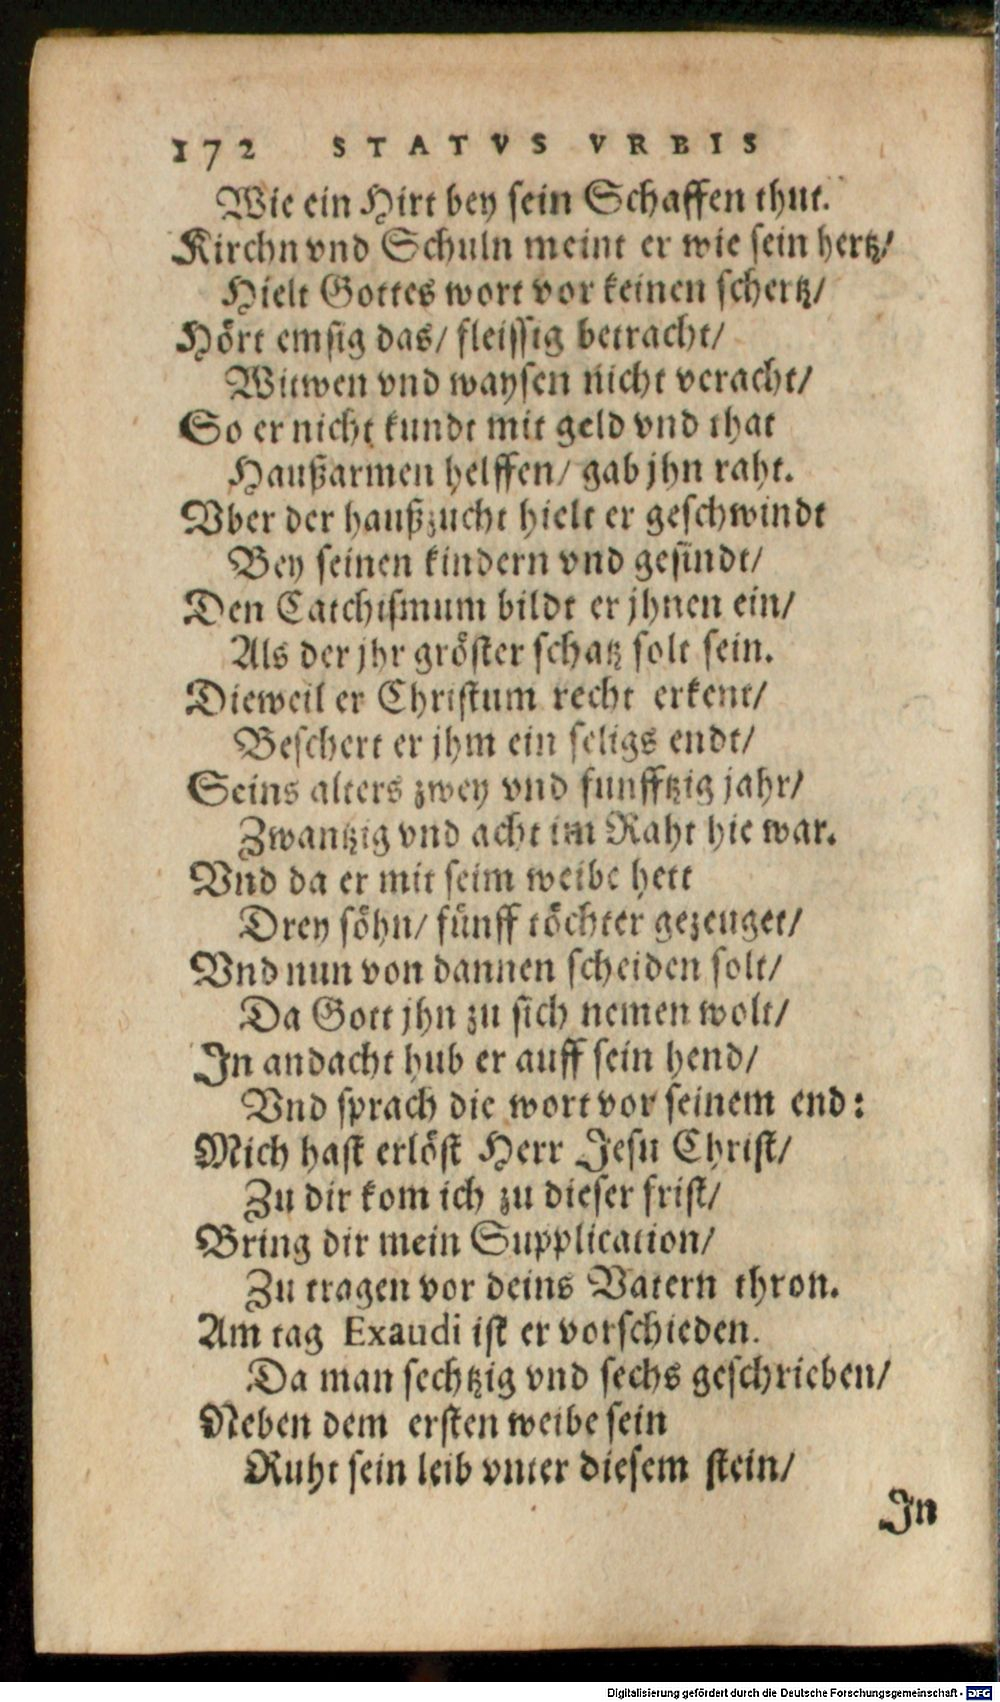 172 STATVS VRBIS
Wie ein Hirt bey sein Schaffen thut.
Kirchn vnd Schuln meint er wie sein hertz/
Hielt Gottes wort vor keinen schertz/
Hört emsig das/ fleissig betracht/
Witwen vnd waysen nicht veracht/
So er nicht kundt mit geld vnd that
Haußarmen helffen/ gab jhn raht.
Vber der haußzucht hielt er geschwindt
Bey seinen kindern vnd gesindt/
Den Catchismum bildt er jhnen ein/
Als der jhr gröster schatz solt sein.
Dieweil er Christum recht erkent/
Beschert er jhm ein seligs endt/
Seins alters zwey vnd funfftzig jahr/
Zwantzig vnd acht im Raht hie war.
Vnd da er mit seim weibe hett
Drey söhn/ fünff töchter gezeuget/
Vnd nun von dannen scheiden solt/
Da Gott jhn zu sich nemen wolt/
In andacht hub er auff sein hend/
Vnd sprach die wort vor seinem end:
Mich hast erlöst Herr Jesu Christ/
Zu dir kom ich zu dieser frist/
Bring dir mein Supplication/
Zu tragen vor deins Vatern thron.
Am tag Exaudi ist er vorschieden.
Da man sechtzig vnd sechs geschrieben/
Neben dem ersten weibe sein
Ruht sein leib vnter diesem stein/
In
Digitalisierung gefördert durch die Deutsche Forschungsgemeinschaft - DFG